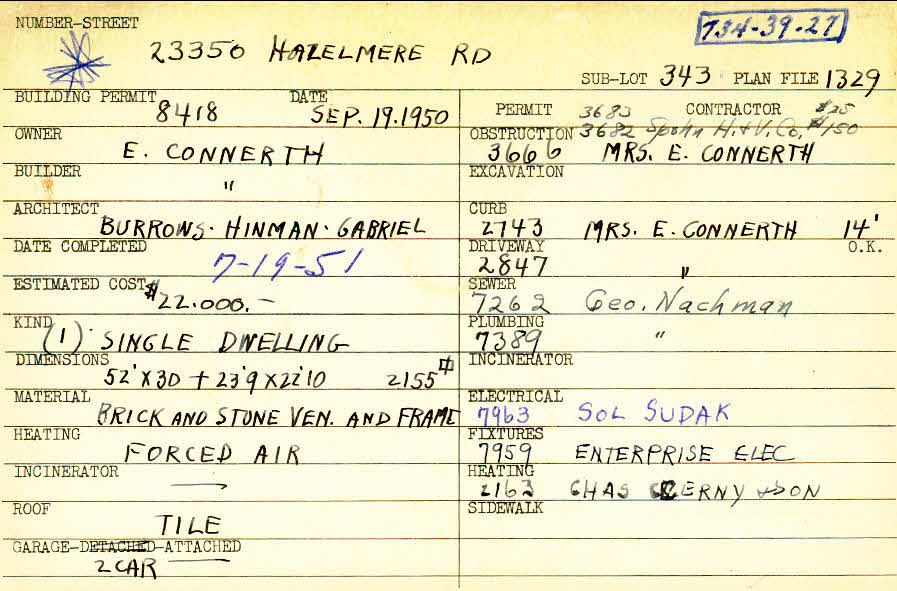 NUMBER-STREET
734-39-27
23350 HAZELMERE RD
SUB-LOT 343 PLAN FILE 1329
BUILDING PERMIT DATE
8418 SEP. 19. 1950
OWNER
E. CONNERTH
BUILDER
"
ARCHITECT
BURROWS · HINMAN · GABRIEL
DATE COMPLETED
7-19-51
ESTIMATED COST
$22.000.-
KIND
(1) SINGLE DWELLING
DIMENSIONS
52' X 30 + 23'9 X 22'10 2155
MATERIAL
BRICK AND STONE VEN. AND FRAME
HEATING
FORCED AIR
INCINERATOR
—
ROOF
TILE
GARAGE-DETACHED-ATTACHED
2 CAR
PERMIT 3683 CONTRACTOR $25
OBSTRUCTION 3682 Spohn H. & V. Co. $150
3666 MRS. E. CONNERTH
EXCAVATION
CURB
2743 MRS. E. CONNERTH 14'
DRIVEWAY O.K.
2847 "
SEWER
7262 Geo. Nachman
PLUMBING
7389 "
INCINERATOR
ELECTRICAL
7963 SOL SUDAK
FIXTURES
7959 ENTERPRISE ELEC
HEATING
2163 CHAS CZERNY & SON
SIDEWALK